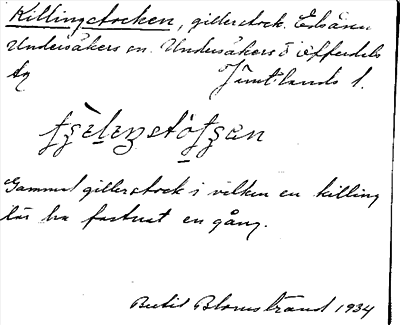 Killingstocken, gillerstock. Edsåsen
Undersåkers sn. Undersåkers o Offerdals
tg Jämtlands l.
Gammal gillerstock i vilken en killing
lär ha fastnat en gång.
Bertil Blomstrand 1934